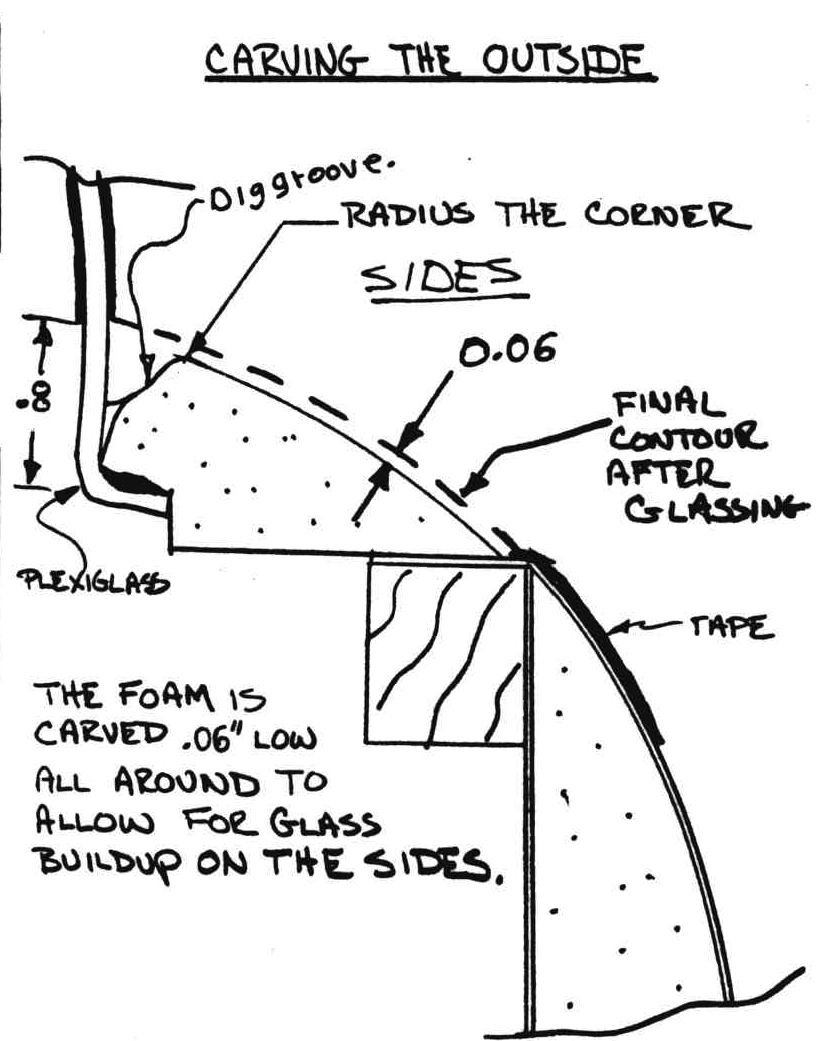 CARVING THE OUTSIDE
Dig groove.
RADIUS THE CORNER
SIDES
0.06
.8
FINAL
CONTOUR
AFTER
GLASSING
PLEXIGLASS
TAPE
THE FOAM IS
CARVED .06" LOW
ALL AROUND TO
ALLOW FOR GLASS
BUILDUP ON THE SIDES.